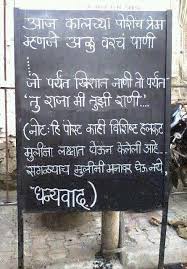 आज कालच्या पोरींच प्रेम
म्हणजे अळु वरचं पाणी
:
जो पर्यंत खिशात नाणी तो पर्यंत
'तु राजा मी तुझी राणी...'
(नोट: हि पोस्ट काही विशिष्ट हलकट
मुलींना लक्षात घेऊन केलेली आहे...
सगळ्याच मुलींनी मनावर घेऊ नये
धन्यवाद)